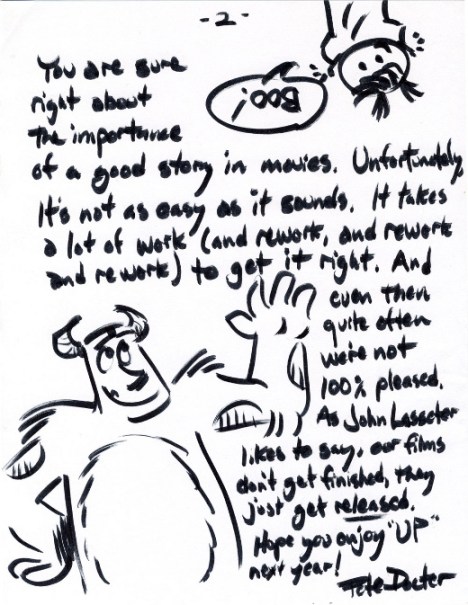 - 2 -
BOO!
You are sure
right about
the importance
of a good story in movies. Unfortunately,
It's not as easy as it sounds. It takes
a lot of work (and rework, and rework
and rework) to get it right. And
even then
quite often
we're not
100% pleased.
As John Lasseter
likes to say, our films
don't get finished, they
just get released.
Hope you enjoy "UP"
next year!
Pete Docter